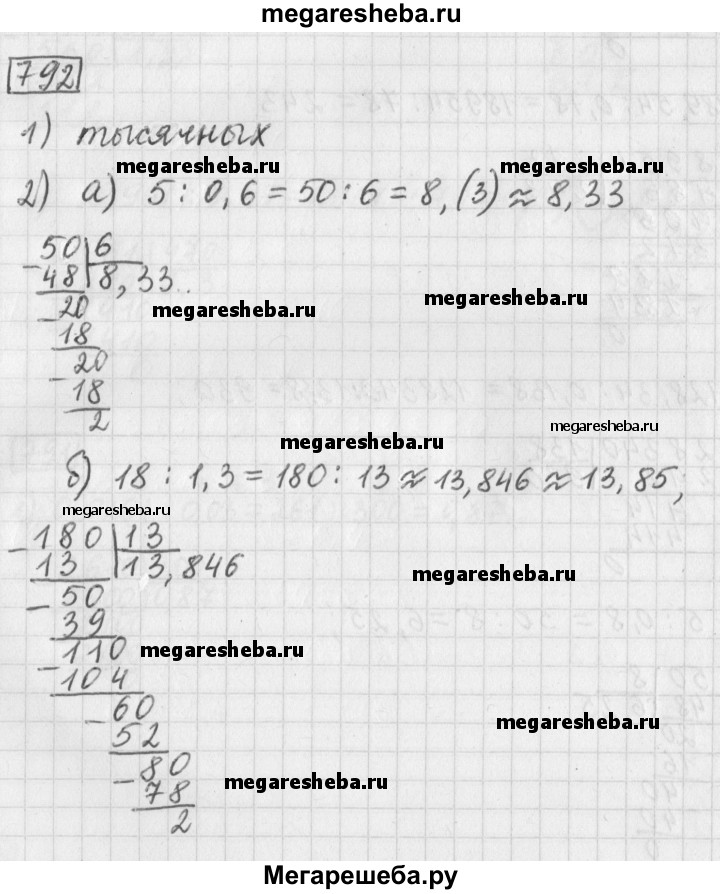 megaresheba.ru
792
1) тысячных
megaresheba.ru megaresheba.ru
2) а) 5 : 0,6 = 50 : 6 = 8,(3) ≈ 8,33
50 | 6
- 48 | 8,33..
megaresheba.ru
- 20
megaresheba.ru
18
- 20
18
2
megaresheba.ru
megaresheba.ru
б) 18 : 1,3 = 180 : 13 ≈ 13,846 ≈ 13,85;
megaresheba.ru
- 180 | 13
13 | 13,846
megaresheba.ru
- 50
39
- 110
megaresheba.ru
104
- 60
megaresheba.ru
52
- 80
megaresheba.ru
78
2
Мегарешеба.ру